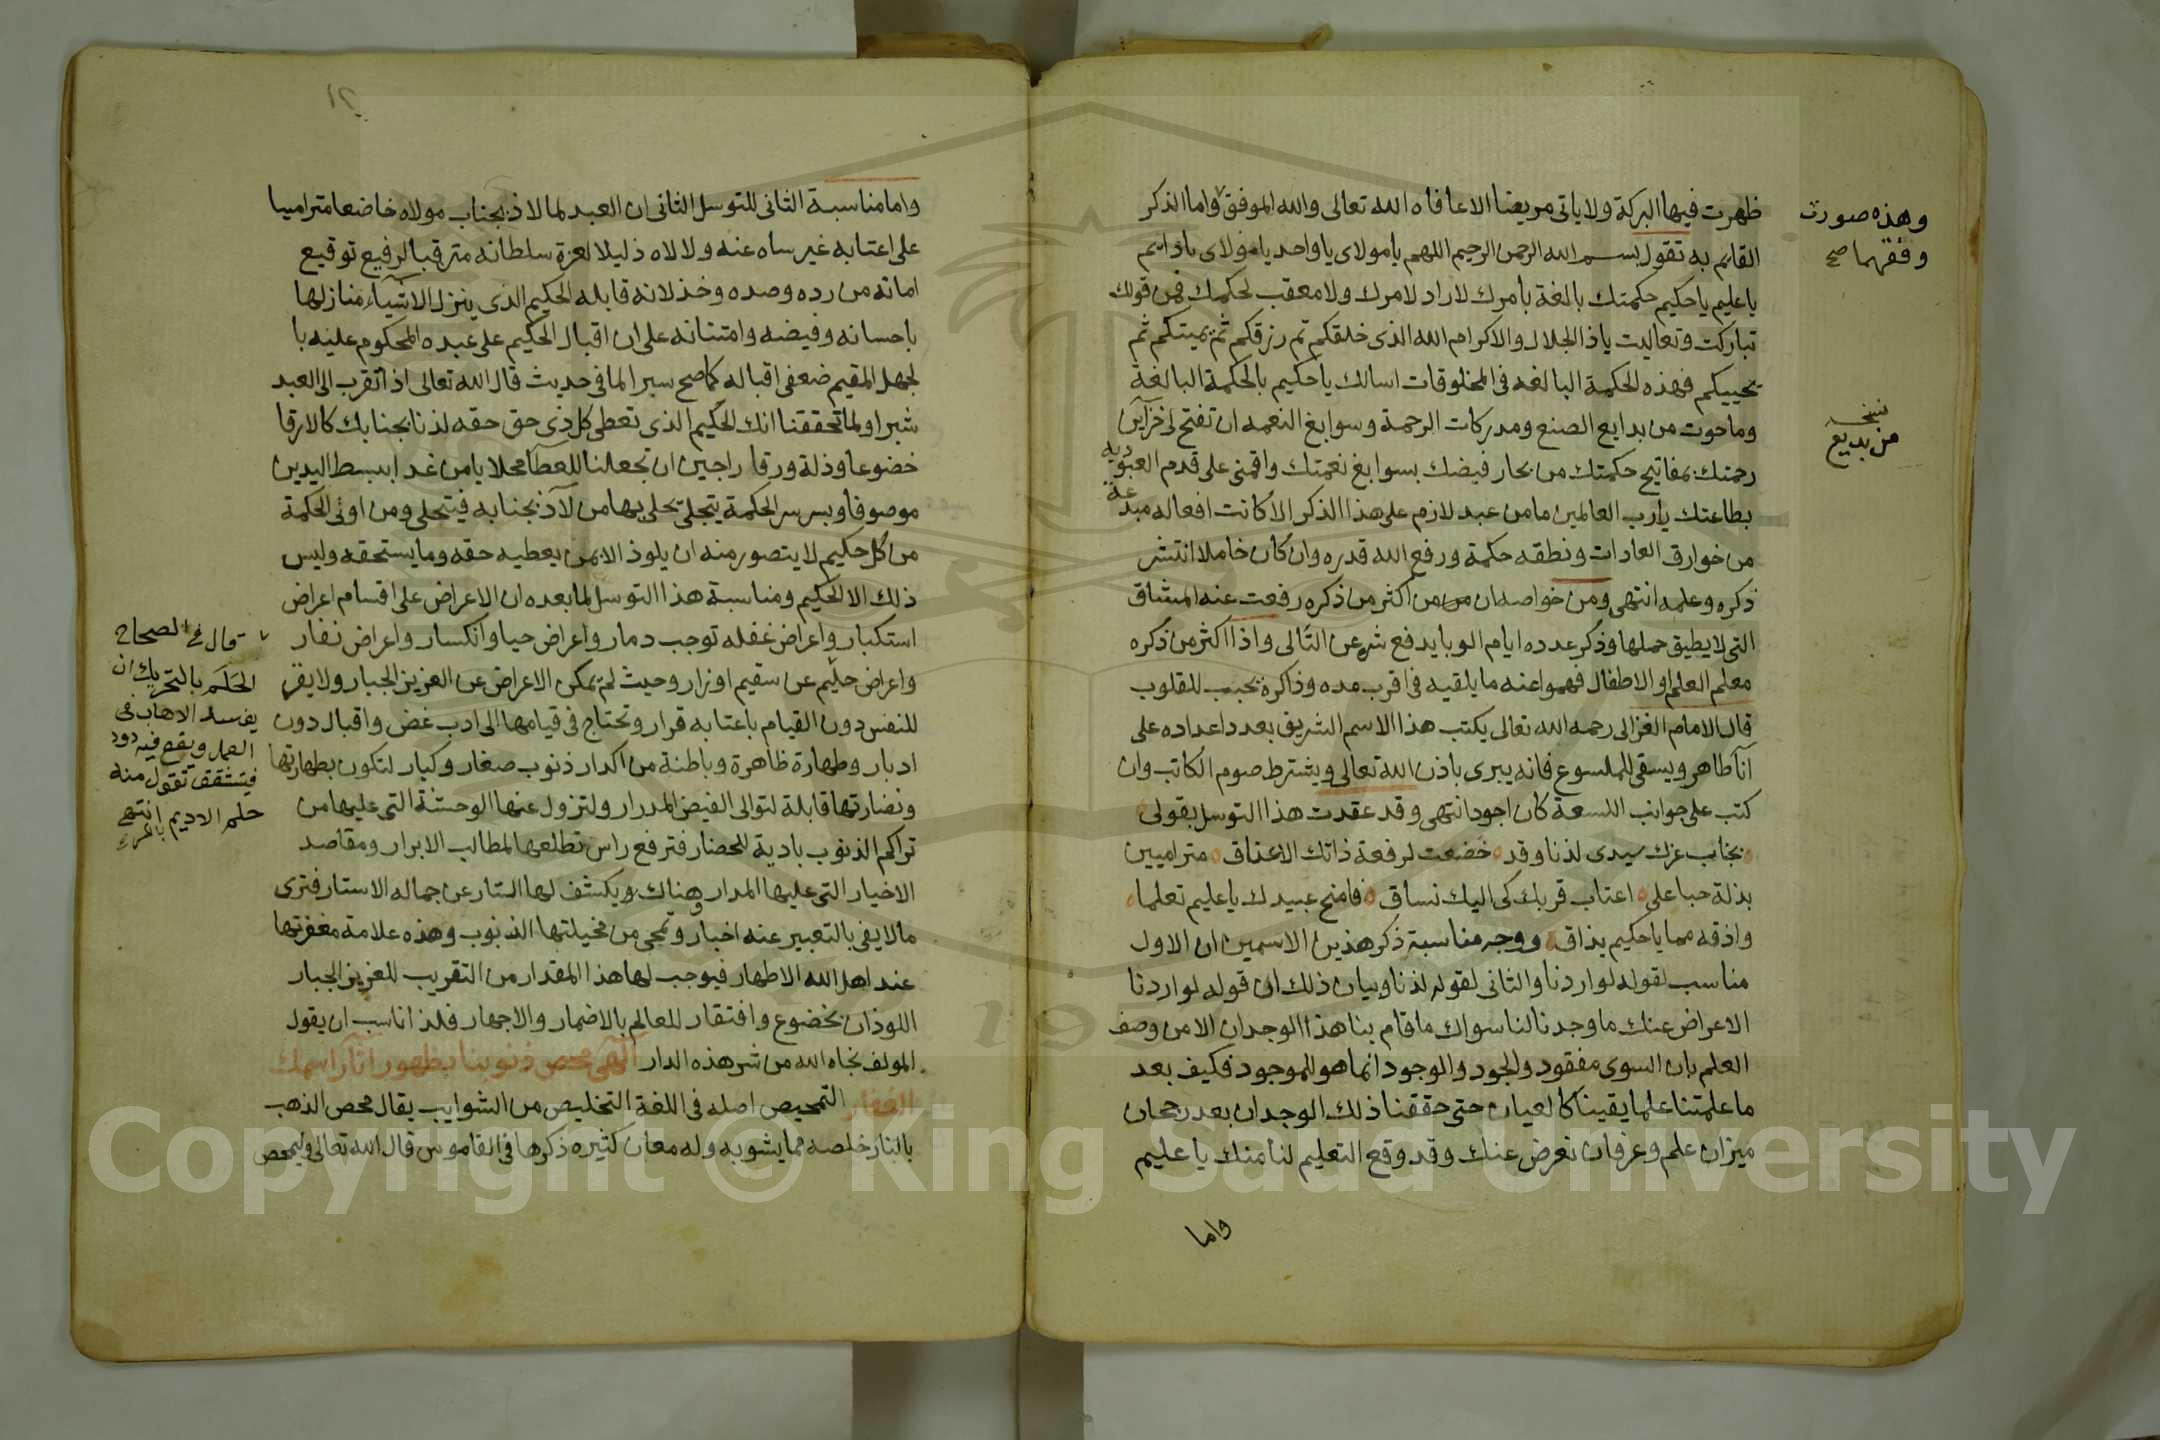 ظهرت فيها البركة ولا ياتى مريضا الا عافاه الله تعالى والله الموفق واما الذكر
القايم به تقول بسم الله الرحمن الرحيم اللهم يا مولاى يا واحد يا مولاى يا دايم
يا عليم يا حكيم حكمتك بالغة بأمرك لا راد لامرك ولا معقب لحكمك فمن قولك
تباركت وتعاليت ياذا الجلال والاكرام الله الذى خلقكم ثم رزقكم ثم يميتكم ثم
يحييكم فهذه الحكمة البالغه فى المخلوقات اسالك يا حكيم بالحكمة البالغة
وما حوت من بدايع الصنع ومدركات الرحمة وسوابغ النعمه ان تفتح لى خزآين
رحمتك بمفاتيح حكمتك من بحار فيضك بسوابغ نعمتك واقمنى على قدم العبودية
بطاعتك يا رب العالمين ما من عبد لازم على هذا الذكر الا كانت افعاله مبدعة
من خوارق العادات ونطقه حكمة ورفع الله قدره وان كان خاملا انتشر
ذكره وعلمه انتهى ومن خواصه ان من اكثر من ذكره رفعت عنه المشاق
التى لا يطيق حملها وذكر عدده ايام الوبا يدفع شره عن التالى واذا اكثر من ذكره
معلم العلم او الاطفال فهموا عنه ما يلقيه فى اقرب مده وذاكره يحبب للقلوب
قال الامام الغزالى رحمه الله تعالى يكتب هذا الاسم الشريف بعدد اعداده على
انآ طاهر ويسقى للملسوع فانه يبرى باذن الله تعالى ويشترط صوم الكاتب وان
كتب على جوانب اللسعة كان اجود انتهى وقد عقدت هذا التوسل بقولى
بجناب عزك سيدى لذنا وقد خضعت لرفعة ذاتك الاعناق متراميين
بذلة حبا على اعتاب قربك كى اليك نساق فامنح عبيدك يا عليم تعلما
واذقه مما يا حكيم يذاق ووجه مناسبة ذكر هذين الاسمين ان الاول
مناسب لقوله لو اردنا والثانى لقوله لذنا وبيان ذلك ان قوله لو اردنا
الاعراض عنك ما وجدنا لنا سواك ما قام بنا هذا الوجدان الا من وصف
العلم بان السوى مفقود والجود والوجود انما هو للموجود فكيف بعد
ما علمتنا علما يقينا كالعيان حتى حققنا ذلك الوجدان بعد رجحان
ميزان علم وعرفان نعرض عنك وقد وقع التعليم لنا منك يا عليم
واما
وهذه صورت
وفقهما صح
نسخه
من بديع
واما مناسبة الثانى للتوسل الثانى ان العبد لما لاذ بجناب مولاه خاضعا متراميا
على اعتابه غير ساه عنه ولا لاه ذليلا لعزة سلطانه مترقبا لرفيع توقيع
امانه من رده وصده وخذلانه قابله الحكيم الذى ينزل الاشيآء منازلها
باحسانه وفيضه وامتنانه على ان اقبال الحكيم على عبده المحكوم عليه با
لجهل المقيم ضعفى اقباله كما صح سير المافى حديث قال الله تعالى اذا تقرب الى العبد
شبرا ولما تحققنا انك الحكيم الذى تعطى كل ذى حق حقه لذنا بجنابك كالارقا
خضوعا وذلة ورقا راجين ان تجعلنا للعطآ محلا يا من غدا ببسط اليدين
موصوفا وبسر سر الحكمة يتجلى يحلى بها من لآذ بجنابه فيتحلى ومن اوتى الحكمة
من كل حكيم لا يتصور منه ان يلوذ الا بمن يعطيه حقه وما يستحقه وليس
ذلك الا الحكيم ومناسبة هذا التوسل لما بعده ان الاعراض على اقسام اعراض
استكبار واعراض غفله توجب دمار واعراض حيا وانكسار واعراض نفار
واعراض حليم عن سقيم اوزار وحيث لم يمكن الاعراض عن العزيز الجبار ولا يقر
للنفس دون القيام باعتابه قرار وتحتاج فى قيامها الى ادب غض واقبال دون
ادبار وطهارة ظاهرة وباطنة من اكدار ذنوب صغار وكبار لتكون بطهارتها
ونضارتها قابلة لتوالى الفيض المدرار ولتزول عنها الوحشة التى عليها من
تراكم الذنوب بادية للحضار فترفع راس تطلعها لمطالب الابرار ومقاصد
الاخيار التى عليها المدار هناك ويكشف لها الستار عن جماله الاستار فترى
ما لا يفى بالتعبير عنه اخبار وتمحى من مخيلتها الذنوب وهذه علامة مغفرتها
عند اهل الله الاطهار فيوجب لها هذا المقدار من التقريب للعزيز الجبار
اللوذان بخضوع وافتقار للعالم بالاضمار والاجهار فلذا ناسب ان يقول
المولف نجاه الله من شر هذه الدار الهى محص ذنوبنا بظهور اثآر اسمك
الغفار التمحيص اصله فى اللغة التخليص من الشوايب يقال محص الذهب
بالنار خلصه مما يشوبه وله معان كثيره ذكرها فى القاموس قال الله تعالى وليمحص
قال فى الصحاح
الحلم بالتحريك ان
يفسد الاهاب فى
العمل ويقع فيه دود
فيتشقق تقول منه
حلم الاديم بالكسر انتهى
Copyright © King Saud University